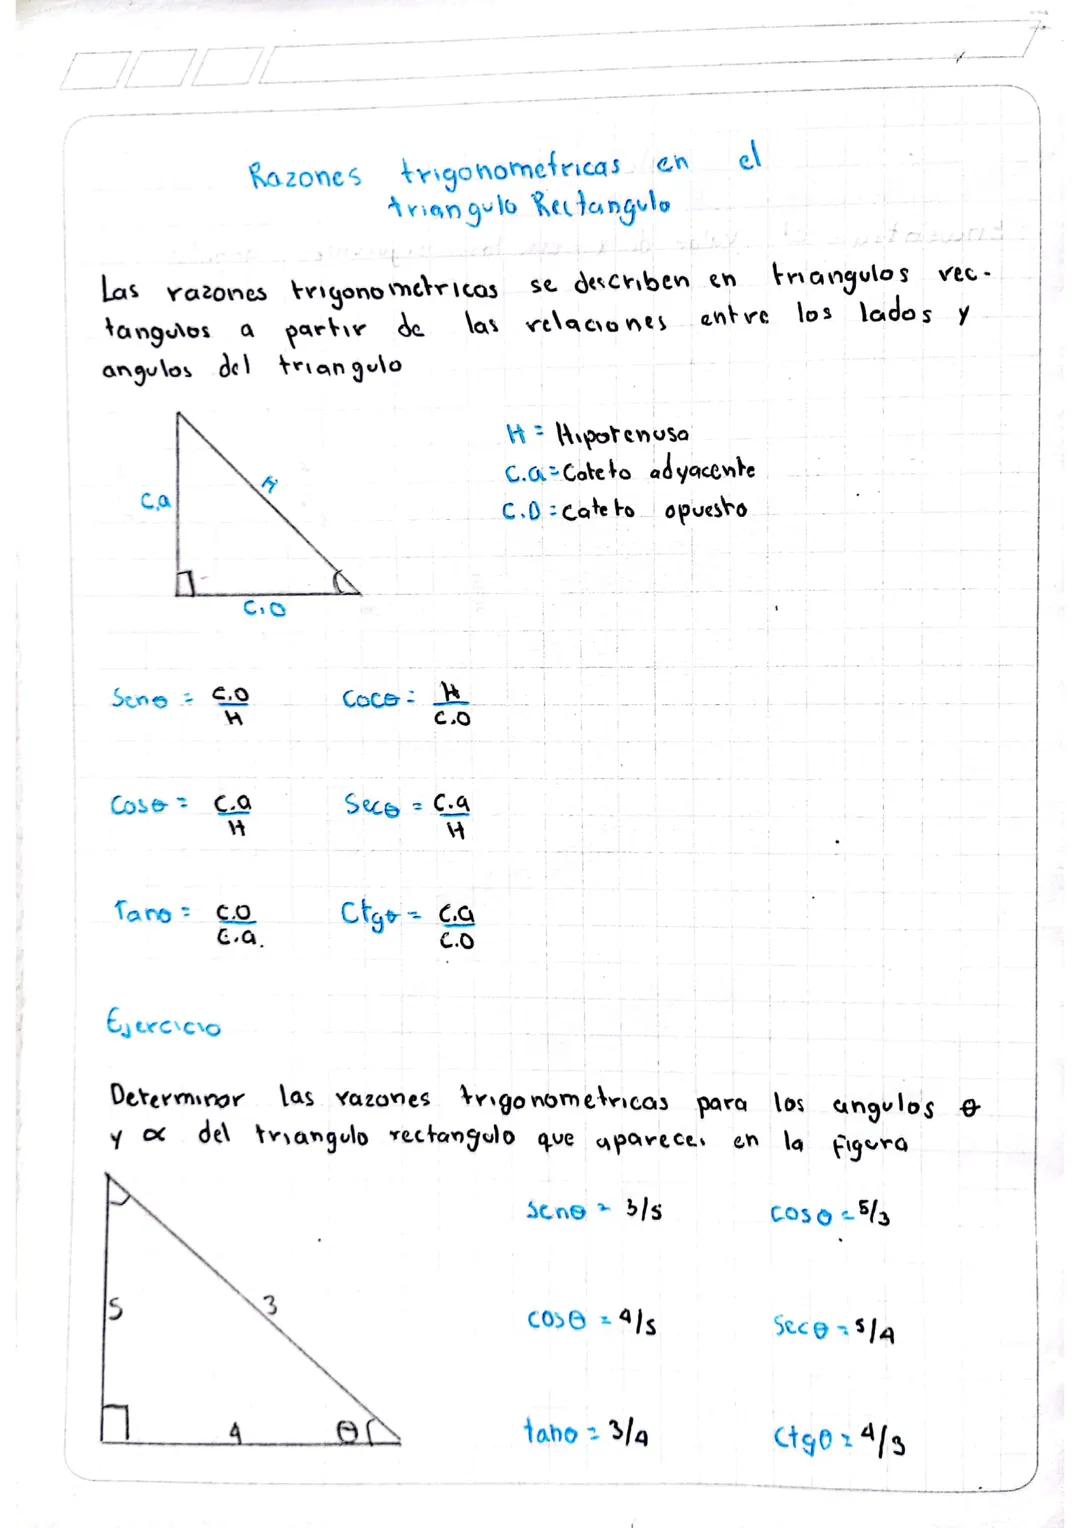 Razones trigonometricas en el
triangulo Rectangulo
Las razones trigonometricas se describen en triangulos rec-
tangulos a partir de las relaciones entre los lados y
angulos del triangulo
H = Hipotenusa
C.a = Cateto adyacente
C.O = cateto opuesto
C.a
H
C.O
Senθ = C.O/H Cocθ = H/C.O
Cosθ = C.a/H Secθ = C.a/H
Tanθ = C.O/C.a. Ctgθ = C.a/C.O
Ejercicio
Determinar las razones trigonometricas para los angulos θ
y α del triangulo rectangulo que aparece en la figura
5
3
4
θ
senθ = 3/5 cosθ = 5/3
cosθ = 4/5 Secθ = 5/4
tanθ = 3/4 Ctgθ = 4/3